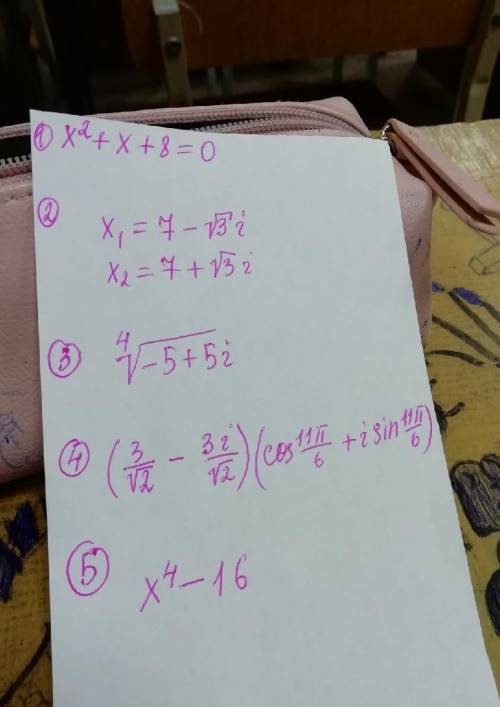 ① x² + x + 8 = 0
② x₁ = 7 − √3 i
x₂ = 7 + √3 i
③ ⁴√(−5 + 5i)
④ (3/√2 − 3i/√2)(cos 11π/6 + i sin 11π/6)
⑤ x⁴ − 16